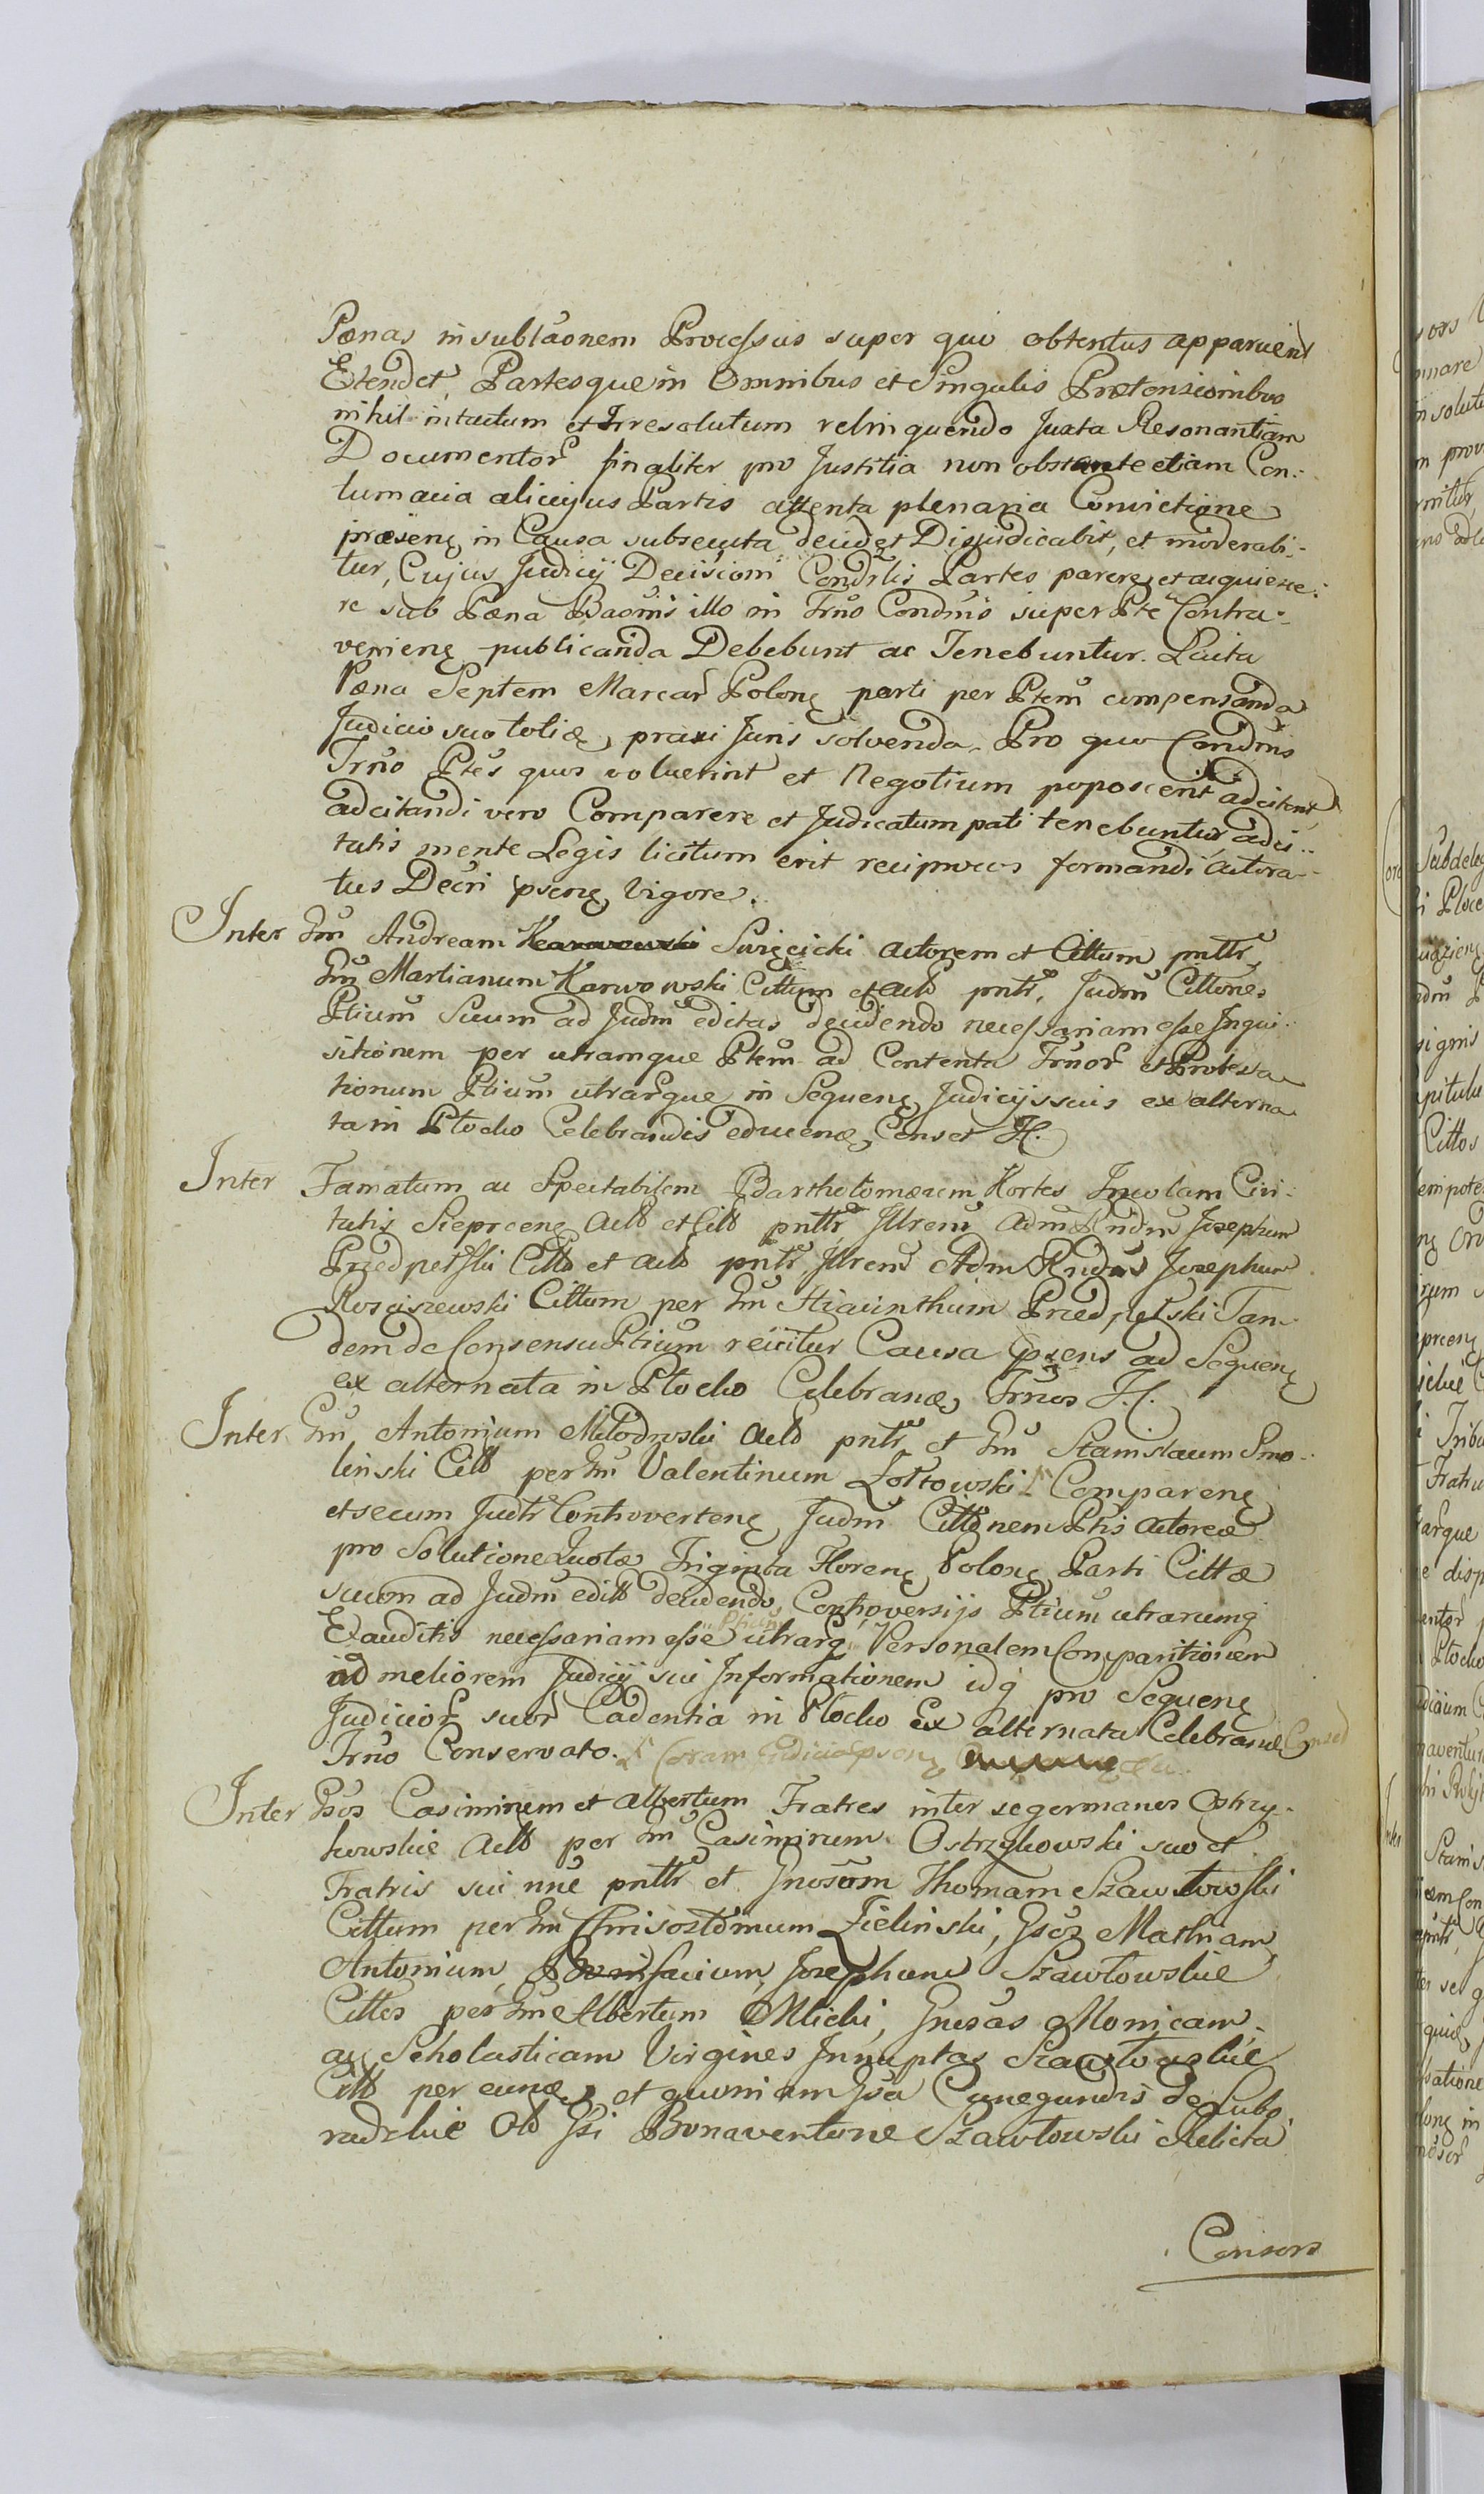 Pœnas in sublaonem Processus super quo obtentus apparuerit
Etendet, Partesque in Omnibus et Singulis Prætensionibus
nihil intactum et Irresolutum relinquendo Juxta Resonantiam
Documentor finaliter pro Justitia non obstante etiam Con-
tumacia alicujus Partis attenta plenaria Convictione
præsene in Causa subsecuta decidet Dijudicabit, et moderabi-
tur, Cujus Judicij Decisioni Condlis Partes parere, et acquiesce-
re sub Pœna Baonis illo in Trno Condnio super Pte Contra-
veniene publicanda Debebunt ac Tenebuntur. Lucta
Pœna Septem Marcar Polone parti per Ptem compensanda
Judicio suo toliæ, praxi Juris solvenda. Pro quo Condnio
Trno Ptes quos voluerint et Negotium poposcerit adcitent,
adcitandi vero Comparere et Judicatum pati tenebuntur, adci-
tatis mente Legis licitum erit reciprocos formandi actora-
tus Decri psene Vigore.
Inter Gm Andream Karwowski Swięcicki actorem et Cittum pntlr,
Gm Martianum Karwowski Cittum et acto pntlr, Judm Cittones
Ptium Suum ad Judm editas decidendo necessariam esse Inqui-
sitionem per utramque Ptem ad Contenta Trnor et Protesta-
tionum Ptium utrarque in Sequene Judicijs suis ex alterna-
ta in Plocko Celebrandis educenæ Censet H.
Inter Famatum ac Spectabilem Bartholomæum Kortes Incolam Civi-
tatis Sieprcene Acto et Citto pntlr Illrem Adm Rndm Josephum
Przedpełski Citto et acto pntlr, Illrem Adm Rndm Josephum
Rosciszewski Cittum per Gm Hiacinthum Przedpełski Tan-
dem de Consensu Ptium reijcitur Causa psens ad Sequene
ex alternata in Plocko Celebranæ, Trnos H.
Inter Gm Antonium Miłodrowski Acto pntlr et Gm Stanislaum Smo-
linski Citto per Gm Valentinum Łottowski Comparene
et secum Judtr Controvertene Judm Cittonem Ptis Actoreæ
pro Solutione Quotæ Triginta Florene Polone Parti Cittæ
suum ad Judm edito decidendo, Controversijs Ptium utrarumq
Exauditis necessariam esse utrarq Ptium Personalem Comparitionem
ad meliorem Judicij sui Informationem idq pro Sequene
Judicior suor Cadentia in Plocko Ex alternata Celebranæ Censet
Trno Conservato. Coram Judicio psene
Inter Gsos Casimirum et Albertum Fratres inter se germanos Ostrzy-
kowskie Acto per Gm Casimirum Ostrzykowski suo et
Fratris sui nne pntlr et Gnosom Thomam Szawłowski
Cittum per Gm Chrisostomum Zielinski, Gsos Mathiam
Antonium, Bonifacium, Josephum Szawłowskie
Cittos per Gm Albertum Mlicki, Gnosas Monicam
ac Scholasticam Virgines Innuptas Szawłowskie
Citto per eunæ, et quoniam Gsa Cunegundis de Lubo-
radzkie Olo Gsi Bonaventuræ Szawłowski Relicta
Consors